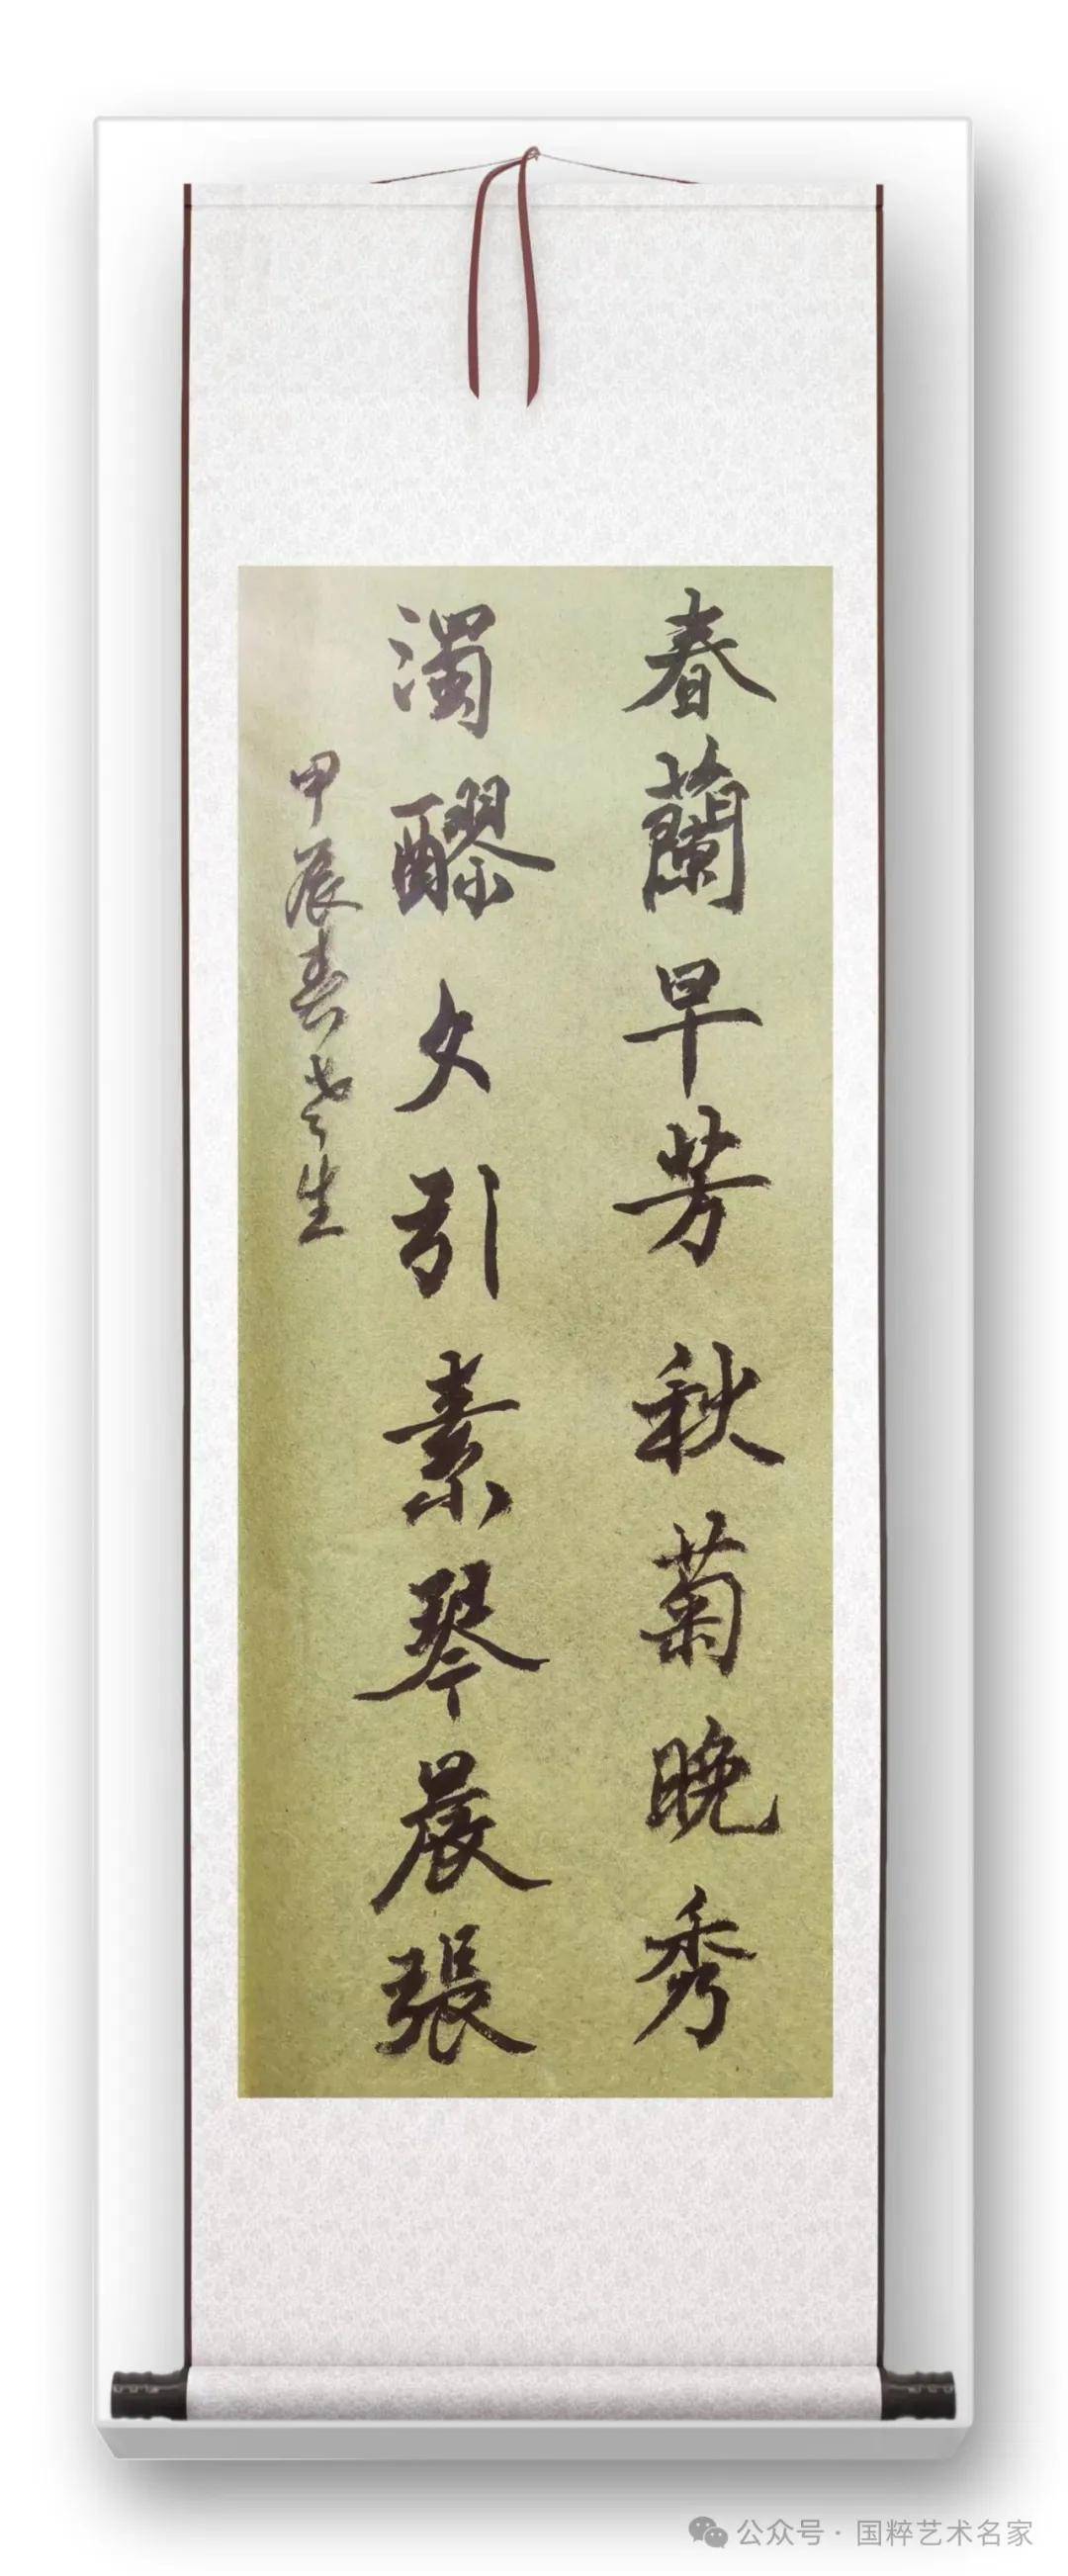 春蘭早芳秋菊晚秀
濁醪夕引素琴晨張
甲辰春
生
公众号·国粹艺术名家